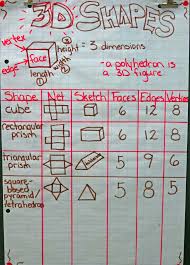 3D SHAPES
vertex
edge
Face
height
width
length
= 3 dimensions
- a polyhedron is
a 3D figure
Shape Net Sketch Faces Edges Vertex
cube 6 12 8
rectangular
prism 6 12 8
triangular
prism 5 9 6
square-
based
pyramid/
tetrahedron 5 8 5